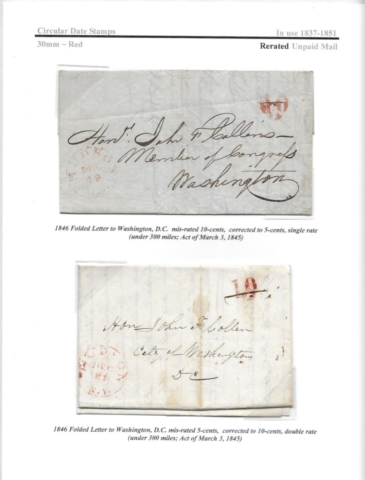 Circular Date Stamps
In use 1837-1851
30mm ~ Red
Rerated Unpaid Mail
10
Hon. John F Collins
Member of Congress
Washington
1846 Folded Letter to Washington, D.C. mis-rated 10-cents, corrected to 5-cents, single rate
(under 300 miles; Act of March 3, 1845)
10
Hon John F Collin
City of Washington
DC
1846 Folded Letter to Washington, D.C. mis-rated 5-cents, corrected to 10-cents, double rate
(under 300 miles; Act of March 3, 1845)